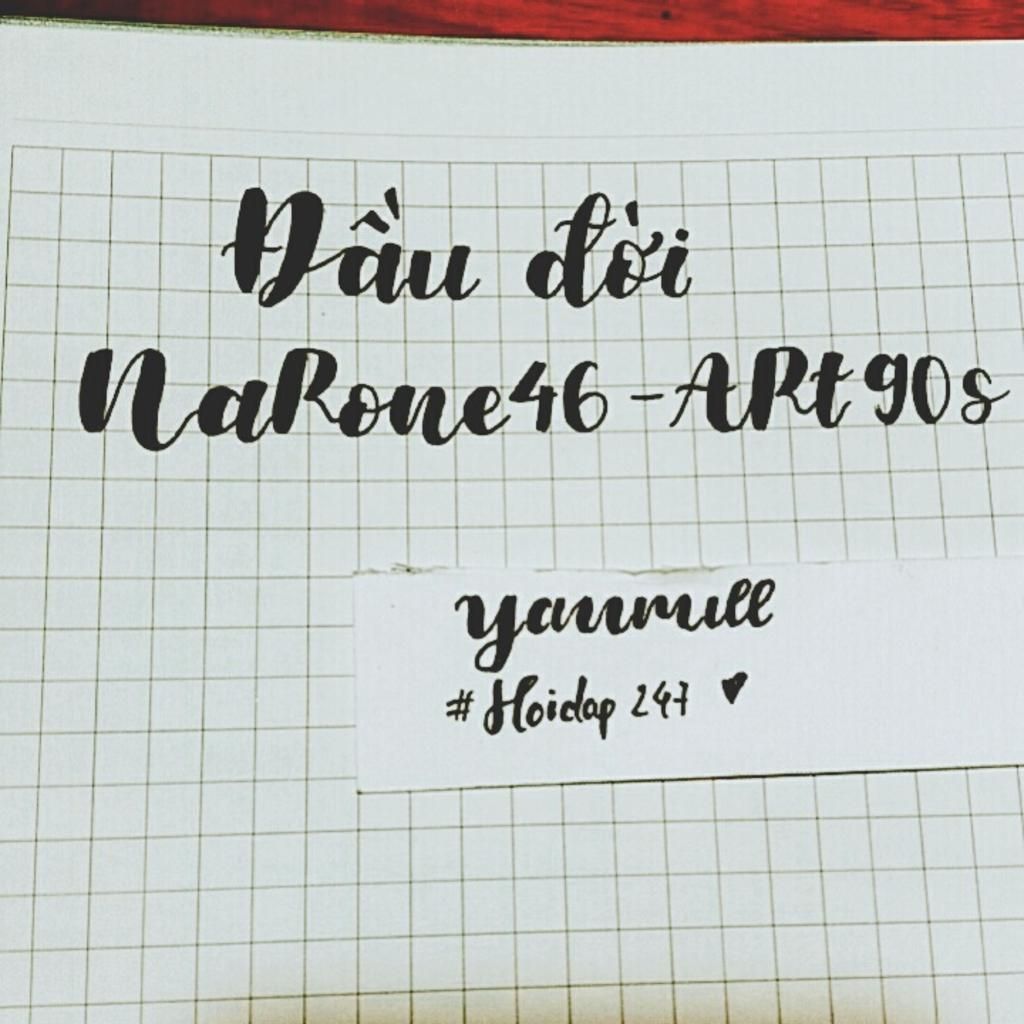 Đầu đời
NaRone46-ARt90s
yaumull
#Hoidap 247